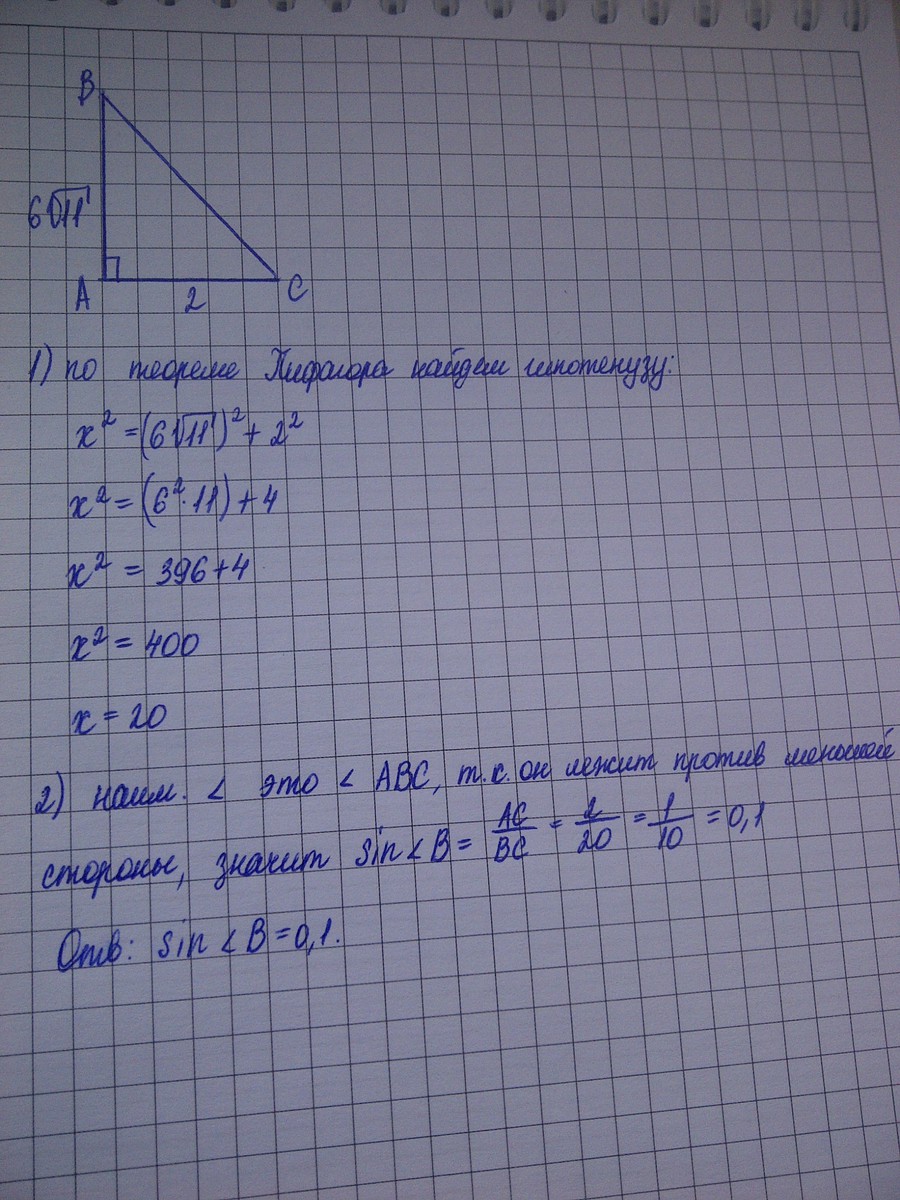 B
6√11
A
2
C
1) по теореме Пифагора найдем гипотенузу:
x² = (6√11)² + 2²
x² = (6² · 11) + 4
x² = 396 + 4
x² = 400
x = 20
2) наим. < это < ABC, т.к. он лежит против меньшей
стороны, значит sin < B = AC/BC = 2/20 = 1/10 = 0,1
Отв: sin < B = 0,1.